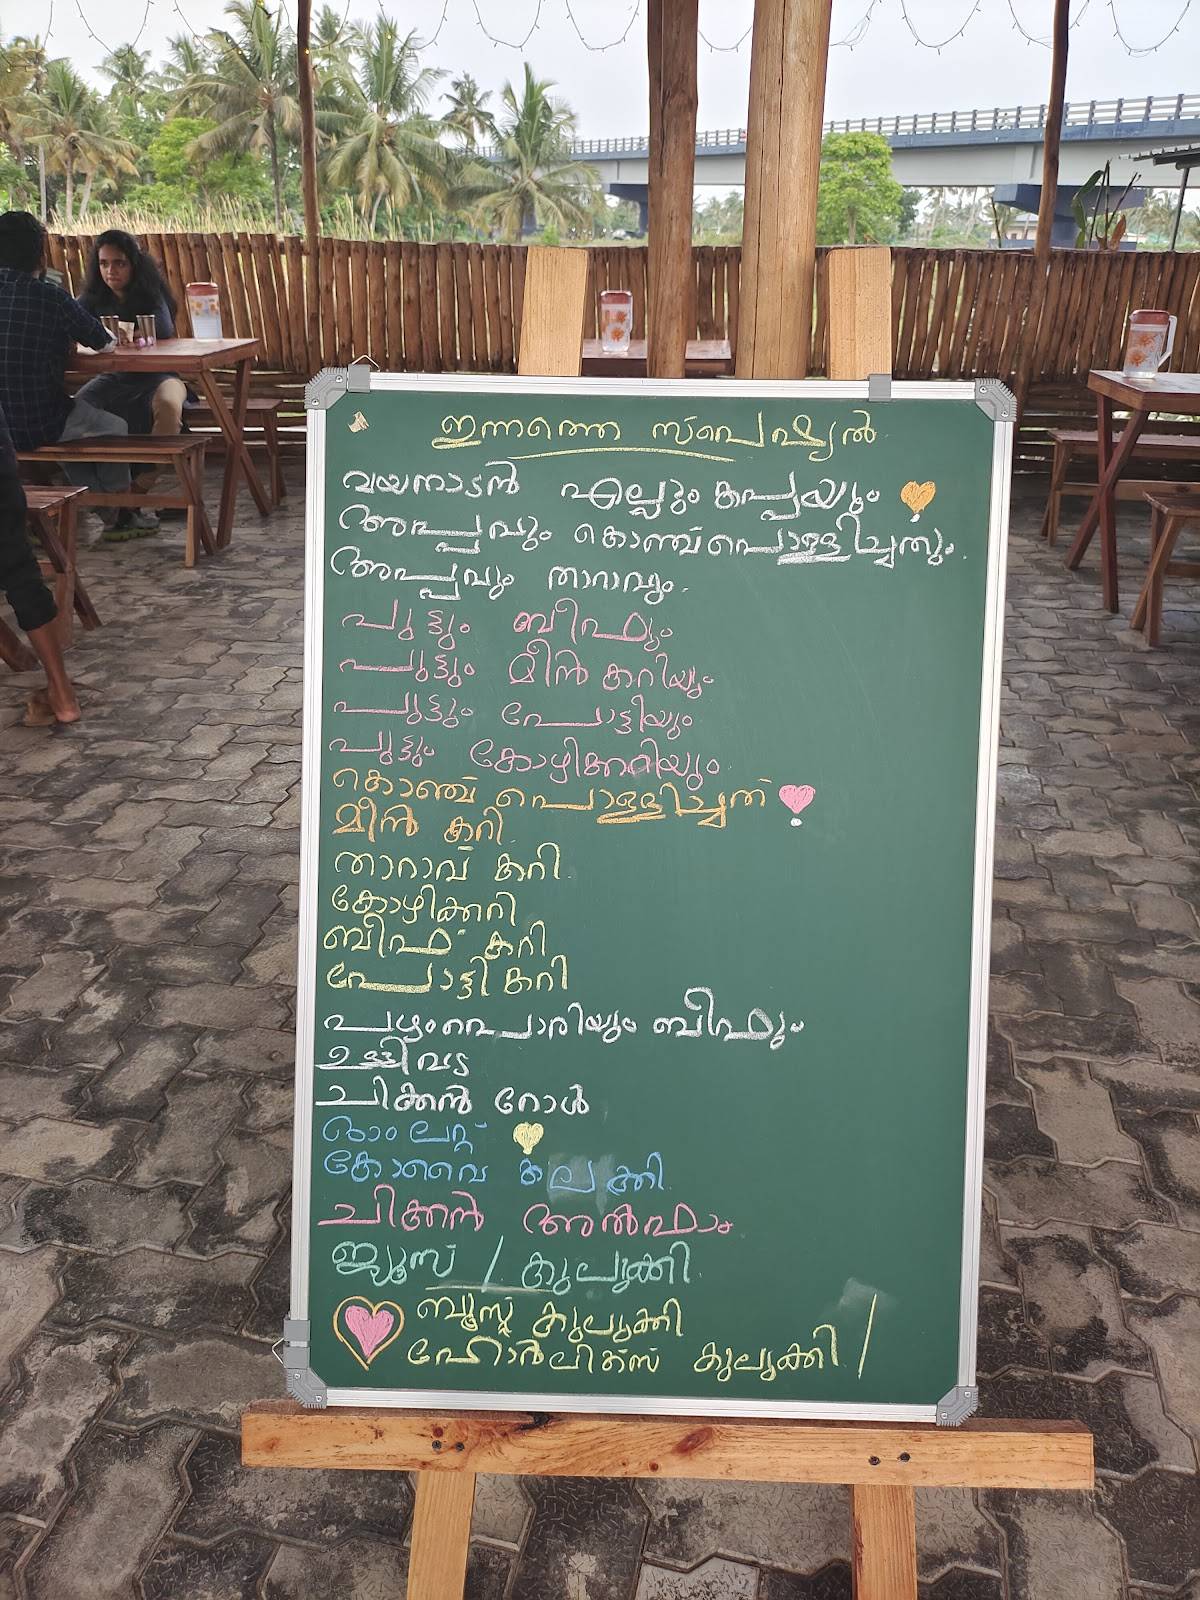 ഇന്നത്തെ സ്പെഷ്യൽ
വയനാടൻ എല്ലും കപ്പയും
അപ്പവും കൊഞ്ച് പൊള്ളിച്ചതും.
അപ്പവും താറാവും.
പുട്ടും ബീഫും
പുട്ടും മീൻ കറിയും
പുട്ടും പോട്ടിയും
പുട്ടും കോഴിക്കറിയും
കൊഞ്ച് പൊള്ളിച്ചത്
മീൻ കറി.
താറാവ് കറി.
കോഴിക്കറി
ബീഫ് കറി
പോട്ടി കറി
പഴംപൊരിയും ബീഫും
ഉള്ളിവട
ചിക്കൻ റോൾ
ഓംലറ്റ്
കോവൈ കലക്കി.
ചിക്കൻ അൽഫാം
ജ്യൂസ് / കുലുക്കി.
ബൂസ്റ്റ് കുലുക്കി
ഹോർലിക്സ് കുലുക്കി. /